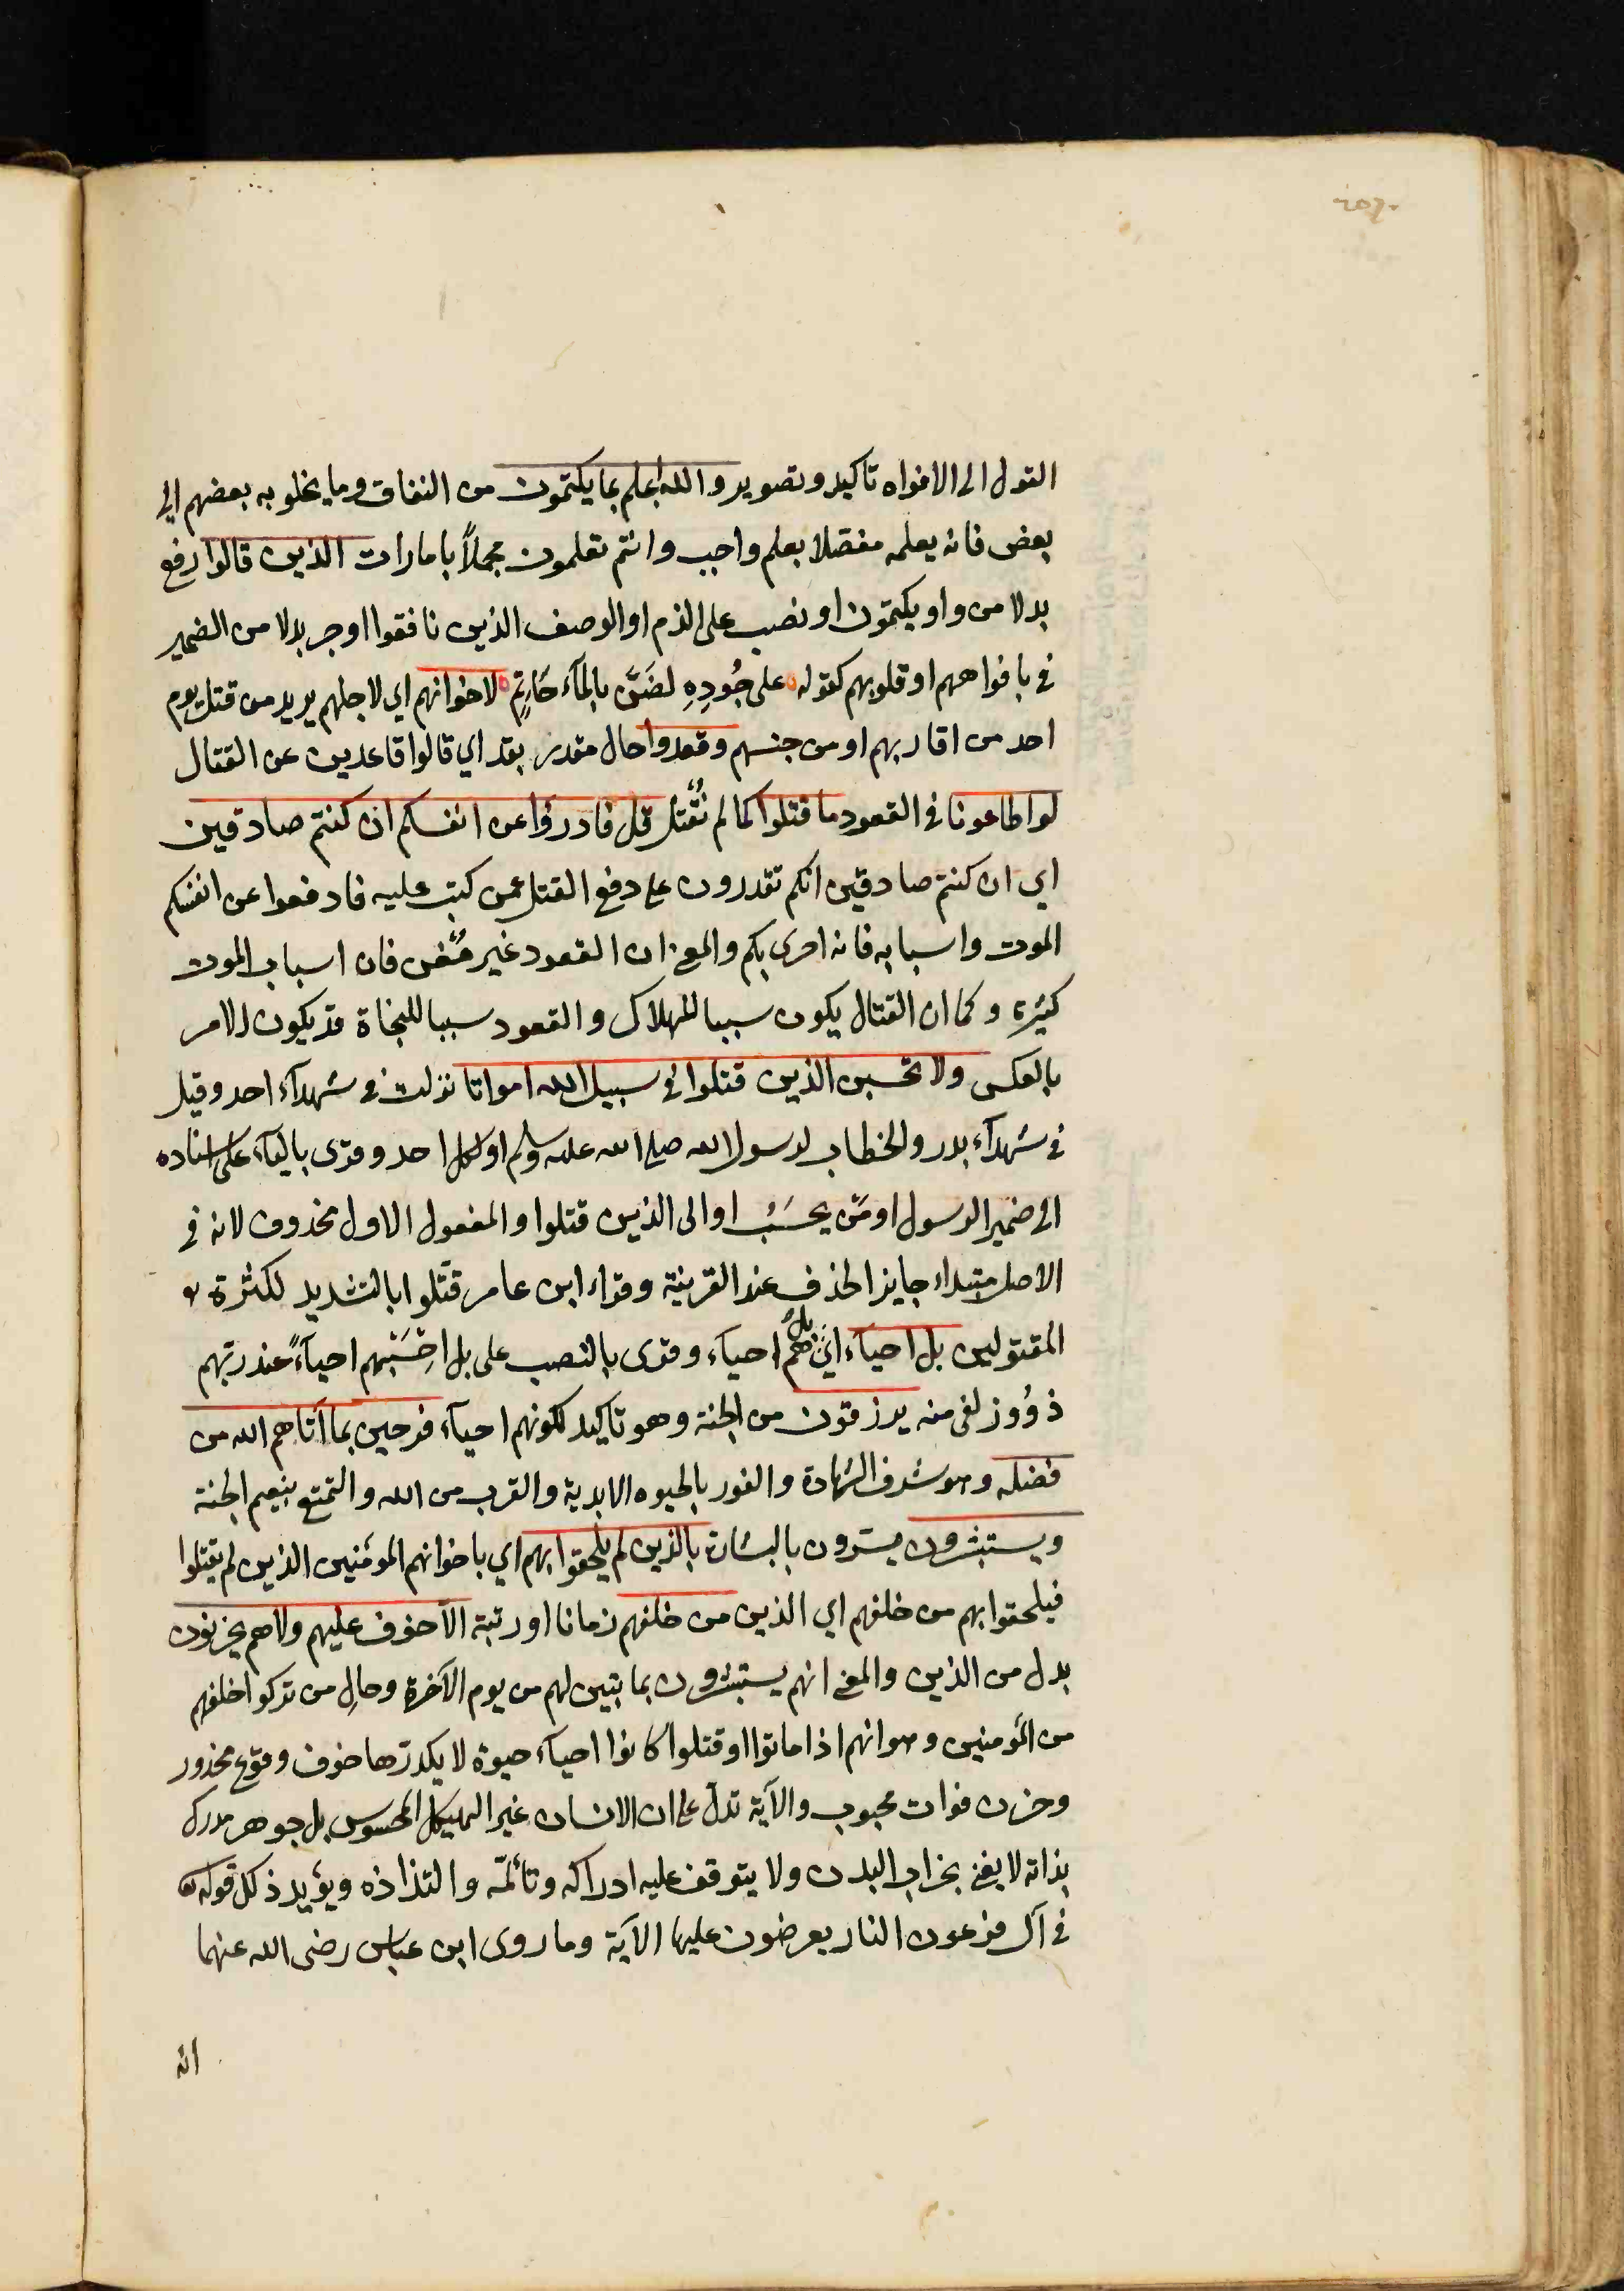 القول الى الافواه تاكيد وتصوير والله اعلم بما يكتمون من النفاق وما يخلو به بعضهم الى
بعض فانه يعلمه مفصلا بعلم واجب وانتم تعلمون مجملاً بامارات الذين قالوا رفع
بدلا من واو يكتمون او نصب على الذم او الوصف الذين نافقوا او جر بدلا من الضمير
في بافواههم او قلوبهم كقوله على جُودِهِ لضَنَّ بالمآء حَاتِمِ لاخوانهم اي لاجلهم يريد من قتل يوم
احد من اقاربهم او من جنسهم وقعدوا حال مقدر بقد اي قالوا قاعدين عن القتال
لو اطاعونا في القعود ما قتلوا كما لم نُقتل قل فادرؤا عن انفسكم ان كنتم صادقين
اي ان كنتم صادقين انكم تقدرون على دفع القتل عمن كتب عليه فادفعوا عن انفسكم
الموت واسبابه فانه احرى بكم والمعنى ان القعود غير مُغن فان اسباب الموت
كثيرة وكما ان القتال يكون سببا للهلاك والقعود سببا للنجاة قد يكون الامر
بالعكس ولا تحسبن الذين قتلوا في سبيل الله امواتا نزلت في شهدآء احد وقيل
في شهدآء بدر والخطاب لرسول الله صلى الله عليه وسلم او لكل احد وقرى باليآء على اسناده
الى ضمير الرسول او مَن يحسَبُ او الى الذين قتلوا والمفعول الاول محذوف لانه في
الاصل مبتداء جايز الحذف عند القرينة وقراء ابن عامر قتّلوا بالتشديد لكثرة
المقتولين بل احيآء اي بل هُم احياء وقرى بالنصب على بل احْسَبْهم احيآءً عند ربهم
ذوُو زلفى منه يرزقون من الجنة وهو تاكيد لكونهم احيآء فرحين بما آتاهم الله من
فضله وهو شرف الشهادة والفوز بالحيوه الابدية والقرب من الله والتمتع بنعيم الجنة
ويستبشرون يسرّون بالبشارة بالذين لم يلحقوا بهم اي باخوانهم المؤمنين الذين لم يقتلوا
فيلحقوا بهم من خلفهم اي الذين من خلفهم زمانا او رتبة الّا خوف عليهم ولا هم يحزنون
بدل من الذين والمعنى انهم يستبشرون بما تبين لهم من يوم الآخرة وحالِ من تركوا خلفهم
من المؤمنين وهو انهم اذا ماتوا او قتلوا كانوا احيآء حيوة لا يكدرّها خوف وقوع محذور
وحزن فوات محبوب والآية تدل على ان الانسان غير الهيكل المحسوس بل جوهر مدرك
بذاته لا يفنى بخراب البدن ولا يتوقف عليه ادراكه وتألمّه والتذاذه ويؤيد ذلك قوله تع
في آل فرعون النار يعرضون عليها الآية وما روى ابن عباس رضى الله عنهما
انه